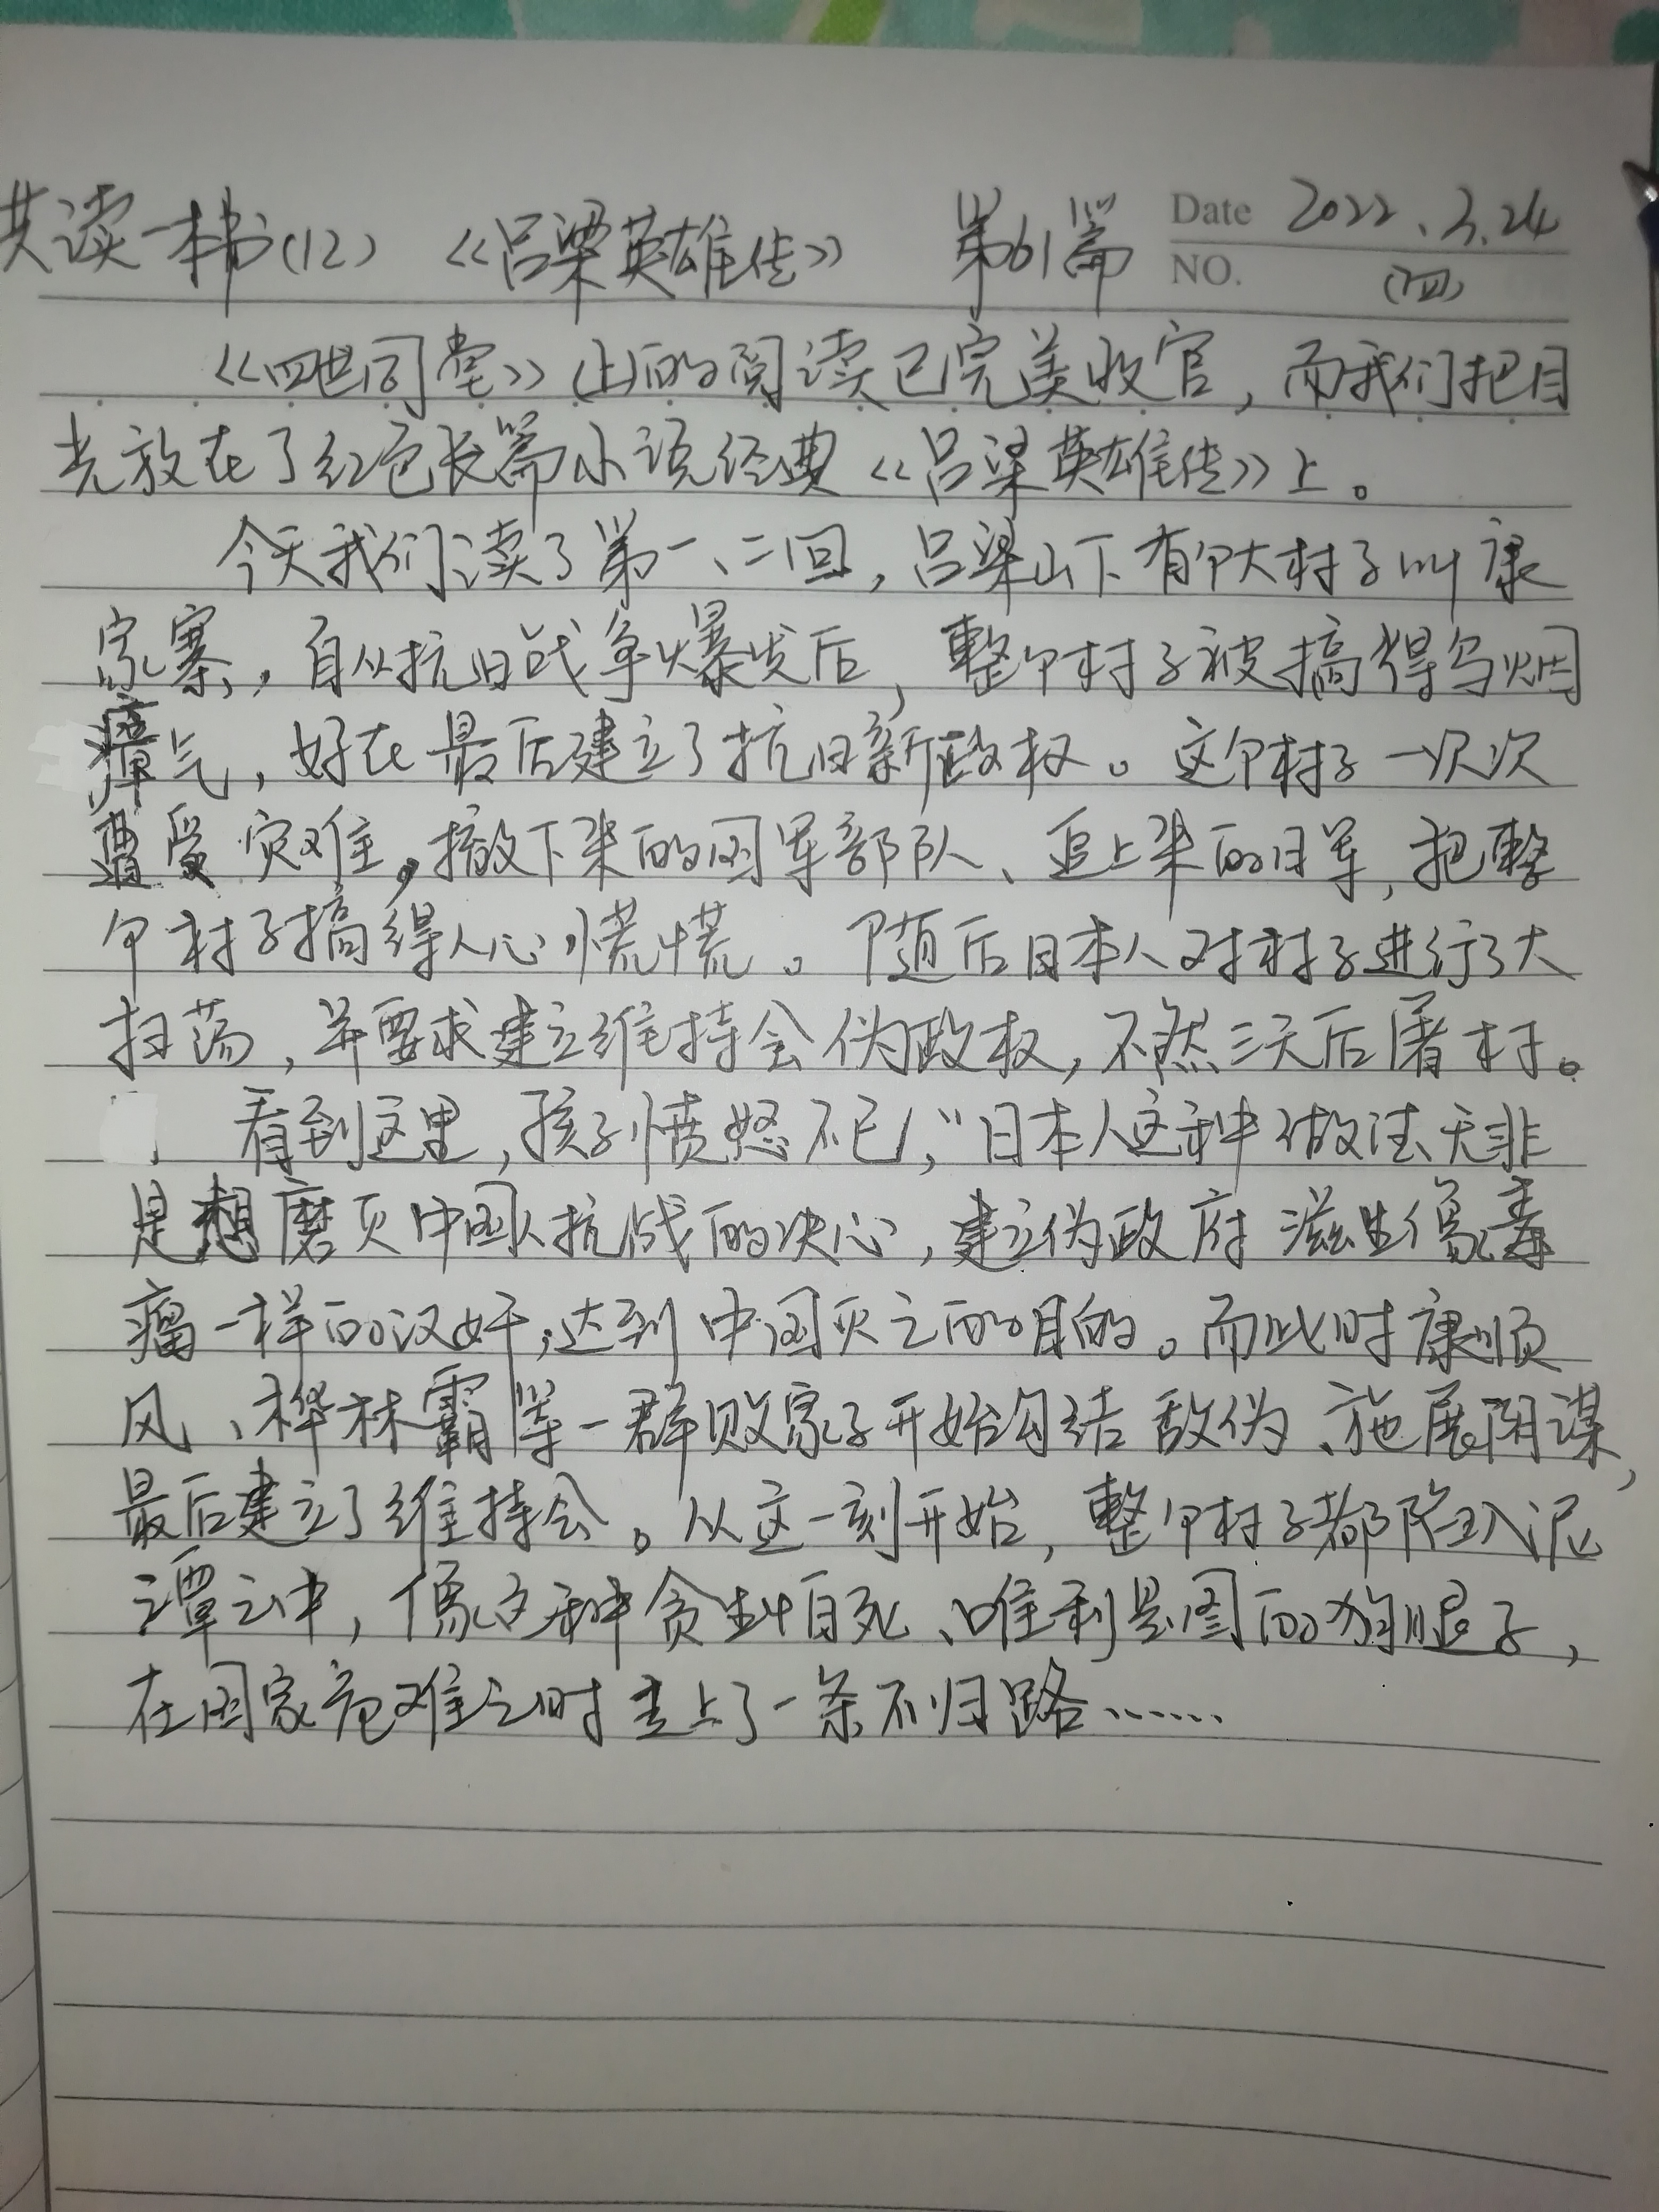 共读一本书(12) 《吕梁英雄传》 第61篇 Date 2022.3.24
NO. (四)
《四世同堂》(上)的阅读已完美收官，而我们把目
光放在了红色长篇小说经典《吕梁英雄传》上。
今天我们读了第一、二回，吕梁山下有个大村子叫康
家寨，自从抗日战争爆发后，整个村子被搞得乌烟
瘴气，好在最后建立了抗日新政权。这个村子一次次
遭受灾难，撤下来的国军部队、追上来的日军，把整
个村子搞得人心慌慌。随后日本人对村子进行了大
扫荡，并要求建立维持会伪政权，不然三天后屠村。
看到这里，孩子愤怒不已，"日本人这种做法无非
是想磨灭中国人抗战的决心，建立伪政府滋生像毒
瘤一样的汉奸，达到中国灭亡的目的。而此时康顺
风、桦林霸等一群败家子开始勾结敌伪、施展阴谋，
最后建立了维持会。从这一刻开始，整个村子都陷入泥
潭之中，像这种贪生怕死、唯利是图的狗腿子，
在国家危难之时走上了一条不归路……